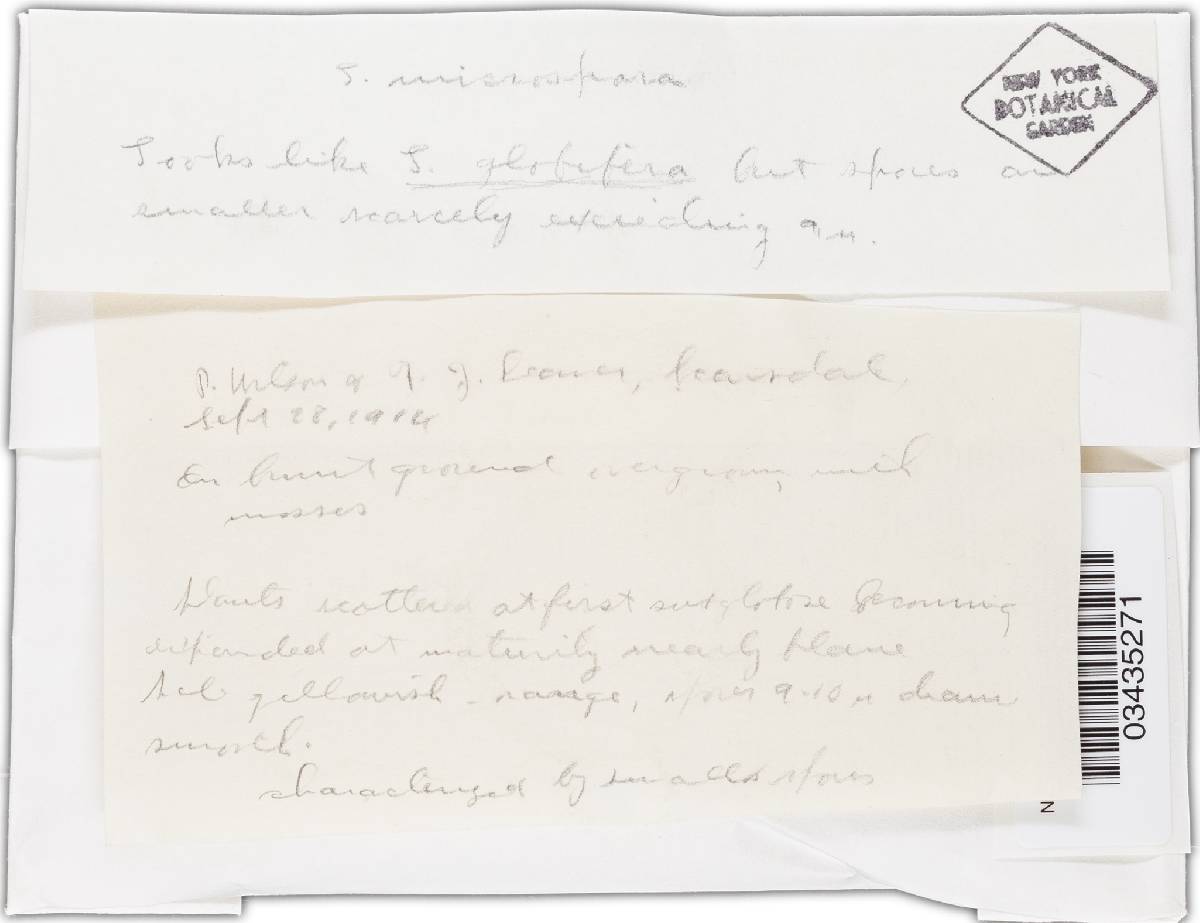 S. microspora
NEW YORK
BOTANICAL
GARDEN
Looks like S. globifera but spores are
smaller scarcely exceeding 9 µ.
P. Wilson & F. J. Seaver, Scarsdale,
Sept 28, 1914
On burnt ground overgrown with
mosses
Plants scattered at first subglobose becoming
expanded at maturity nearly plane
yellowish-orange, spores 9-10 µ diam
smooth.
characterized by small spores
03435271
N